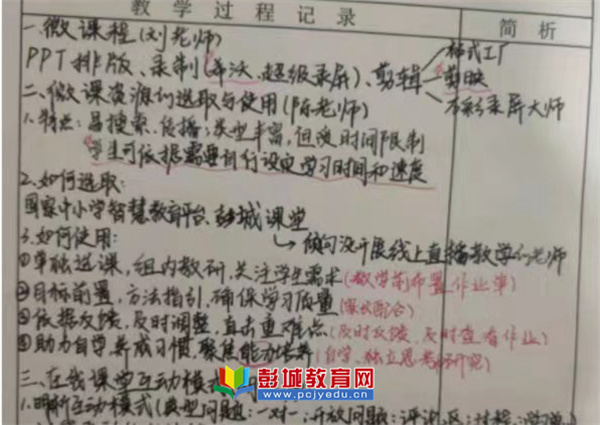 教学过程记录 简析
一、微课程(刘老师)
PPT排版、录制(希沃、超级录屏)、剪辑 格式工厂
剪映
本彩录屏大师
二、微课资源的选取与使用(陈老师)
1.特点:易搜索、传播;类型丰富,但受时间限制
学生可依据需要自行设定学习时间和速度
2.如何选取:
国家中小学智慧教育平台、彭城课堂
3.如何使用: 倾向没开展线上直播教学的老师
①单独选课,组内教研,关注学生需求(教学前布置作业单)
②目标前置,方法指引,确保学习质量(家长配合)
③依据反馈,及时调整,直击重难点(及时反馈,及时查看作业)
④助力自学,养成习惯,聚焦能力培养(自学、独立思考、研究)
三、在线课堂互动模式
彭城教育网
www.pcjyedu.cn
1.明晰互动模式(典型问题:一对一;开放问题:评论区;过程:学习单